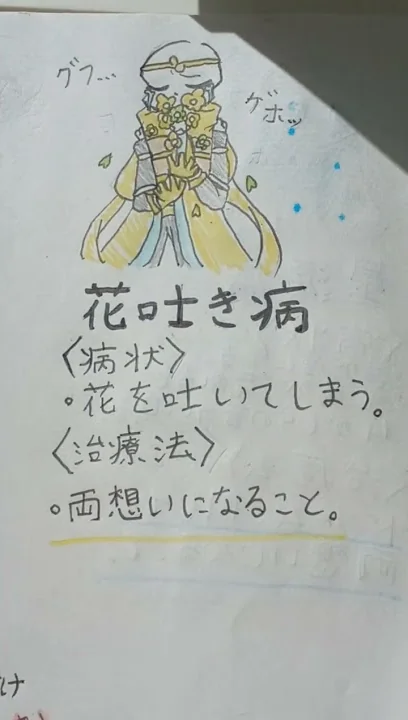 グフ…
ゲホッ
花吐き病
〈病状〉
・花を吐いてしまう。
〈治療法〉
・両想いになること。
け